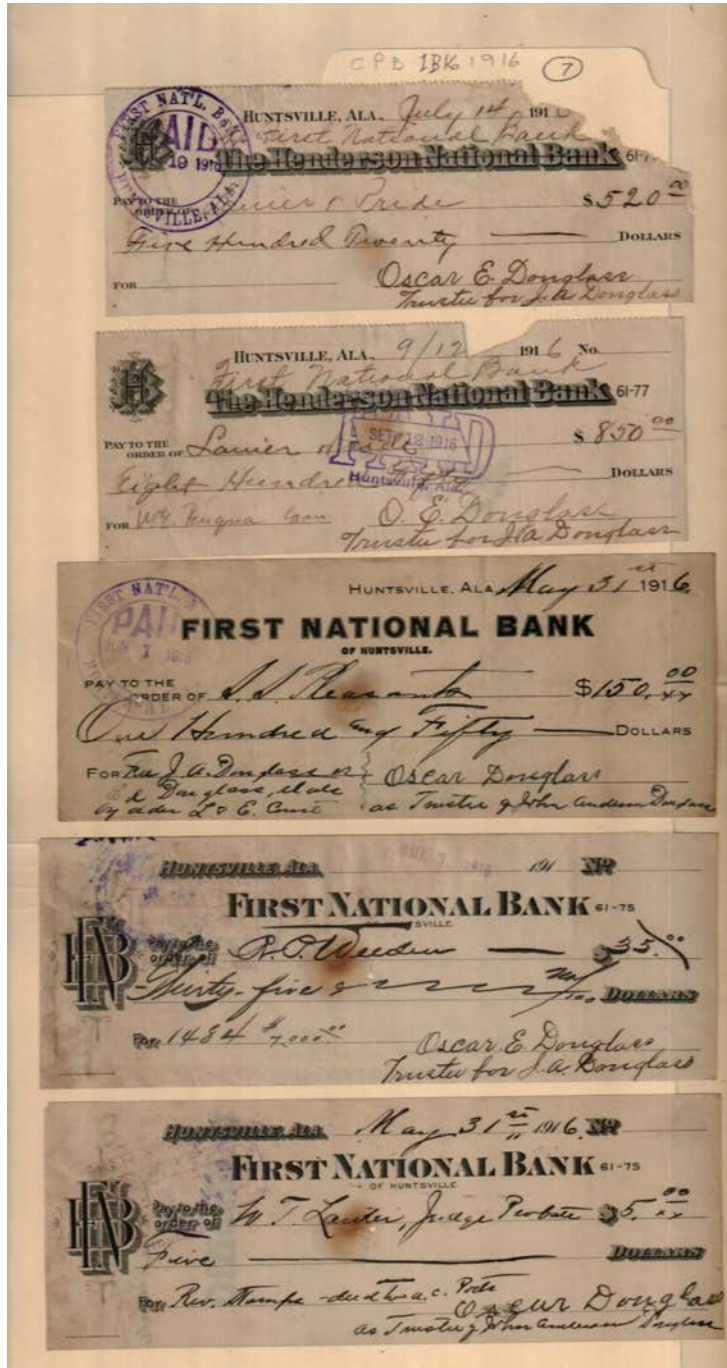 CPB IBK 1916 7
FIRST NAT'L. BANK
PAID
19 1916
HUNTSVILLE, ALA.
HUNTSVILLE, ALA., July 14, 191
First National Bank
The Henderson National Bank 61-7
PAY TO THE
ORDER OF & Pride $520 00
Five Hundred Twenty DOLLARS
FOR Oscar E. Douglass
Trustee for J.A. Douglass
HUNTSVILLE, ALA., 9/12 1916 No.
First National Bank
The Henderson National Bank 61-77
PAY TO THE
ORDER OF Lanier $ 850 00
PAID
SEP 12 1916
Huntsville, Ala.
Eight Hundred DOLLARS
FOR O. E. Douglass
Trustee for J.A. Douglass
HUNTSVILLE, ALA. May 31st 1916.
FIRST NAT'L.
PAID
1 191
FIRST NATIONAL BANK
OF HUNTSVILLE.
PAY TO THE
ORDER OF S. S. Pleasants $150. 00/xx
One Hundred and Fifty DOLLARS
FOR J. A. Douglass Oscar Douglass
Douglass, as Trustee of John Anderson Douglass
by order L & E. Court
HUNTSVILLE, ALA. 191 No.
FIRST NATIONAL BANK 61-75
SVILLE.
FNB
Pay to the
order of R. P. Weeden $35.00
Thirty-five & no/100 DOLLARS
For 1484 $7,000.00 Oscar. E. Douglass
Trustee for J.A. Douglass
HUNTSVILLE, ALA. May 31st 1916. No.
FIRST NATIONAL BANK 61-75
OF HUNTSVILLE
FNB
Pay to the
order of W. T. Lawler, Judge Probate $5. 00/xx
Five DOLLARS
For Rev. Stamps - deed to a. c. Oscar Douglass
as Trustee of John Anderson Douglass